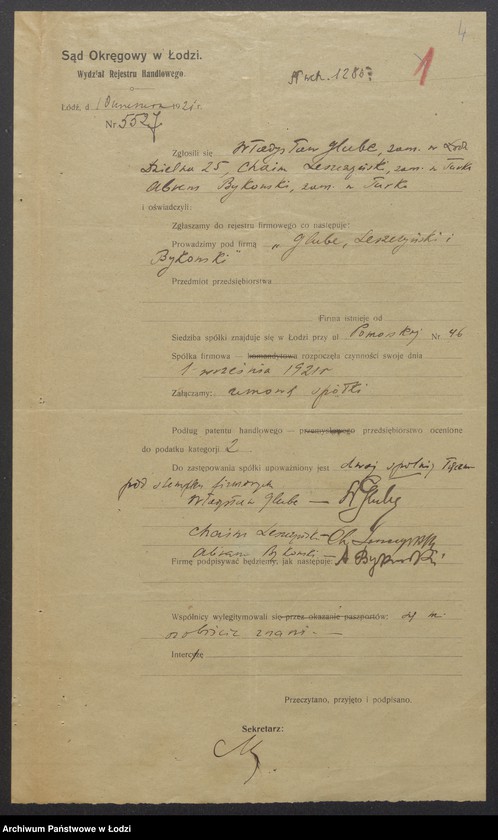 4
Sąd Okręgowy w Łodzi.
Wydział Rejestru Handlowego.
Nr wch. 12807
1
Łódź, d. 1921 r.
Nr 5527
Zgłosili się Władysław Glube, zam. w Łodzi
Dzielna 25, Chaim Leszczyński, zam. w Turku
Abram Bykowski, zam. w Turku
i oświadczyli:
Zgłaszamy do rejestru firmowego co następuje:
Prowadzimy pod firmą „Glube, Leszczyński i
Bykowski"
Przedmiot przedsiębiorstwa
Firma istnieje od
Siedziba spółki znajduje się w Łodzi przy ul Pomorskiej Nr 46
Spółka firmowa — komandytowa rozpoczęła czynności swoje dnia
1 września 1921 r
Załączamy: umowę spółki
Podług patentu handlowego — przemysłowego przedsiębiorstwo ocenione
do podatku kategorji 2
Do zastępowania spółki upoważniony jest dwaj spólnicy łącznie
pod stemplem firmowym
Władysław Glube — W Glube
Chaim Leszczyński — Ch. Leszczyński
Abram Bykowski — A Bykowski
Firmę podpisywać będziemy, jak następuje:
Wspólnicy wylegitymowali się przez okazanie paszportów: są mi
osobiście znani. —
Intercyzę
Przeczytano, przyjęto i podpisano.
Sekretarz:
Archiwum Państwowe w Łodzi